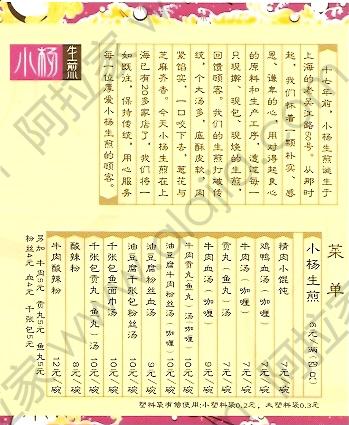 小杨生煎
十七年前，小杨生煎诞生于
上海的老吴江路60号。从那时
起，我们怀着一颗朴实、感
恩、谦卑的心，用对得起良心
的原料和生产工序，遵循每一
只现擀、现包、现烧的生煎
回馈顾客。我们的生煎打破传
统，个大汤多，底酥皮软，肉
紧馅实，一口咬下去，葱花与
芝麻齐香。今天小杨生煎在上
海已有20多家店了，我们将一
如既往，保持传统，用心服务
每一位厚爱小杨生煎的顾客。
菜单
小杨生煎 6元/两(四只)
精肉小馄饨 7元/碗
鸡鸭血汤（咖喱） 7元/碗
牛肉汤（咖喱） 7元/碗
贡丸（鱼丸）汤 7元/碗
牛肉血汤（咖喱） 9元/碗
牛肉贡丸鱼丸汤（咖喱） 10元/碗
油豆腐牛肉粉丝汤（咖喱） 10元/碗
油豆腐粉丝血汤 9元/碗
油豆腐千张包粉丝汤 10元/碗
千张包鱼面巾汤 10元/碗
千张包贡丸（鱼丸）汤 10元/碗
酸辣粉 8元/碗
牛肉酸辣粉 12元/碗
另加：牛肉5元 贡丸5元 鱼丸5元
粉丝4元 血4元 千张包5元
塑料袋有偿使用：小塑料袋0.2元，大塑料袋0.3元